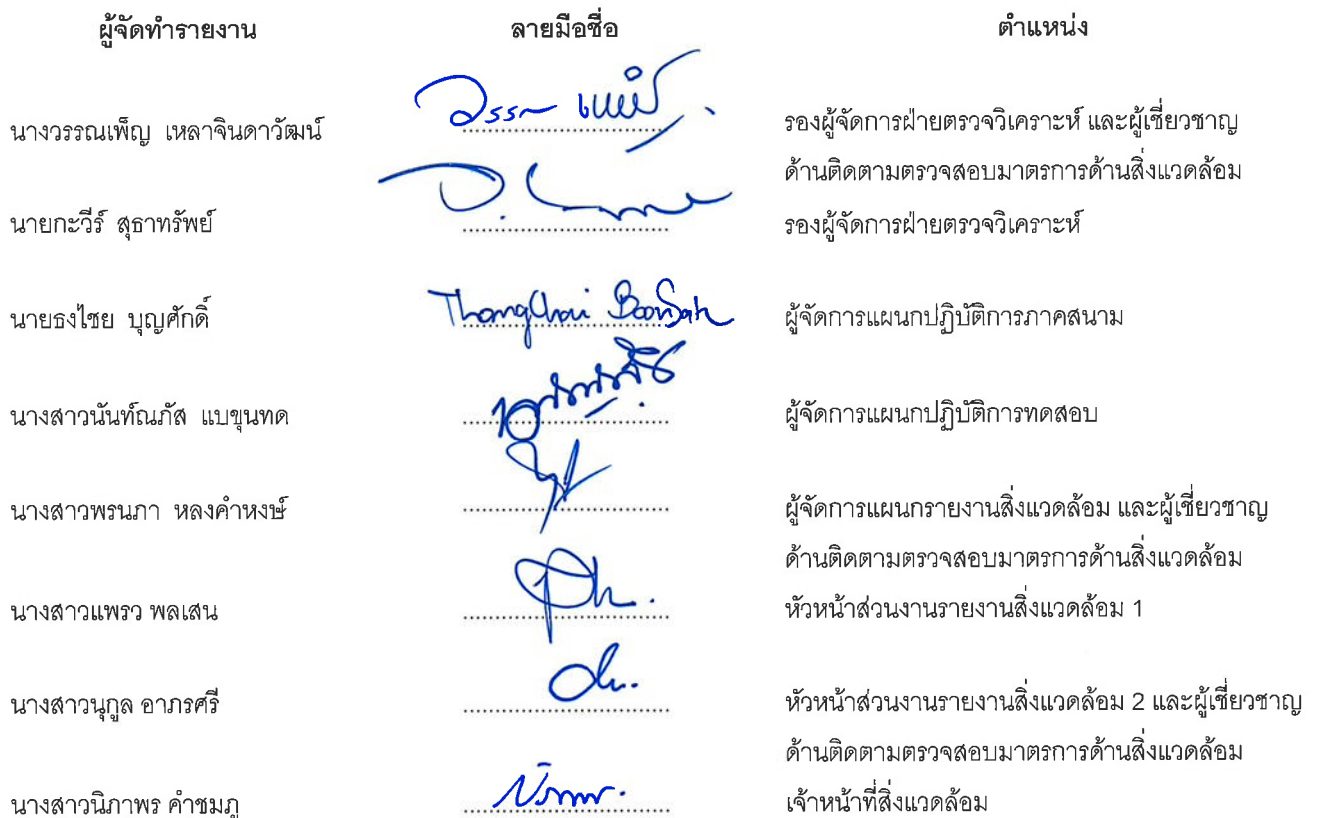 ผู้จัดทำรายงาน ลายมือชื่อ ตำแหน่ง
นางวรรณเพ็ญ เหลาจินดาวัฒน์ วรรณเพ็ญ รองผู้จัดการฝ่ายตรวจวิเคราะห์ และผู้เชี่ยวชาญ
ด้านติดตามตรวจสอบมาตรการด้านสิ่งแวดล้อม
นายกะวีร์ สุธาทรัพย์ รองผู้จัดการฝ่ายตรวจวิเคราะห์
นายธงไชย บุญศักดิ์ Thongchai Boonsak ผู้จัดการแผนกปฏิบัติการภาคสนาม
นางสาวนันท์ณภัส แบขุนทด ผู้จัดการแผนกปฏิบัติการทดสอบ
นางสาวพรนภา หลงคำหงษ์ ผู้จัดการแผนกรายงานสิ่งแวดล้อม และผู้เชี่ยวชาญ
ด้านติดตามตรวจสอบมาตรการด้านสิ่งแวดล้อม
นางสาวแพรว พลเสน หัวหน้าส่วนงานรายงานสิ่งแวดล้อม 1
นางสาวนุกูล อาภรศรี หัวหน้าส่วนงานรายงานสิ่งแวดล้อม 2 และผู้เชี่ยวชาญ
ด้านติดตามตรวจสอบมาตรการด้านสิ่งแวดล้อม
นางสาวนิภาพร คำชมภู นิภาพร เจ้าหน้าที่สิ่งแวดล้อม